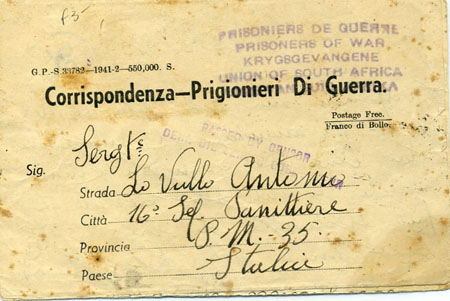 P35-
PRISONIERS DE GUERRE
PRISONERS OF WAR
KRYGSGEVANGENE
UNION OF SOUTH AFRICA
G.P.-S 33782—1941-2—550,000. S.
Corrispondenza—Prigionieri Di Guerra.
Postage Free.
Franco di Bollo.
PASSED BY CENSOR
Sergte
Sig. Lo Vullo Antonio
Strada
Città 16° Sez. Sanittiere
Provincia P.M.-35.
Paese Italia